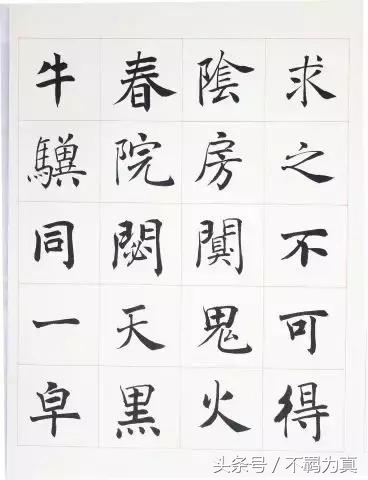 求之不可得
陰房闃鬼火
春院閟天黑
牛驥同一皁
头条号 / 不羁为真